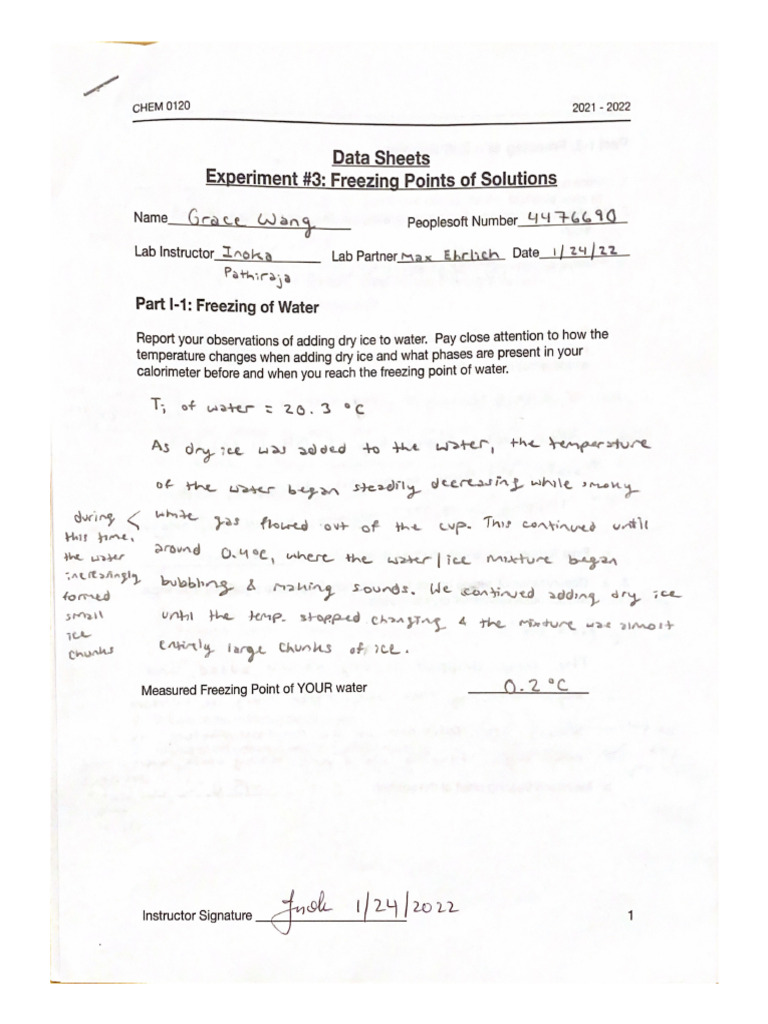 CHEM 0120 2021 - 2022
Data Sheets
Experiment #3: Freezing Points of Solutions
Name Grace Wang Peoplesoft Number 4476690
Lab Instructor Inoka Lab Partner Max Ehrlich Date 1/24/22
Pathiraja
Part I-1: Freezing of Water
Report your observations of adding dry ice to water. Pay close attention to how the
temperature changes when adding dry ice and what phases are present in your
calorimeter before and when you reach the freezing point of water.
Ti of water = 20.3 °C
As dry ice was added to the water, the temperature
of the water began steadily decreasing while smoky
white gas flowed out of the cup. This continued until
around 0.4°C, where the water/ice mixture began
bubbling & making sounds. We continued adding dry ice
until the temp. stopped changing & the mixture was almost
entirely large chunks of ice.
during <
this time,
the water
increasingly
formed
small
ice
chunks
Measured Freezing Point of YOUR water 0.2 °C
Instructor Signature Inok 1/24/2022 1